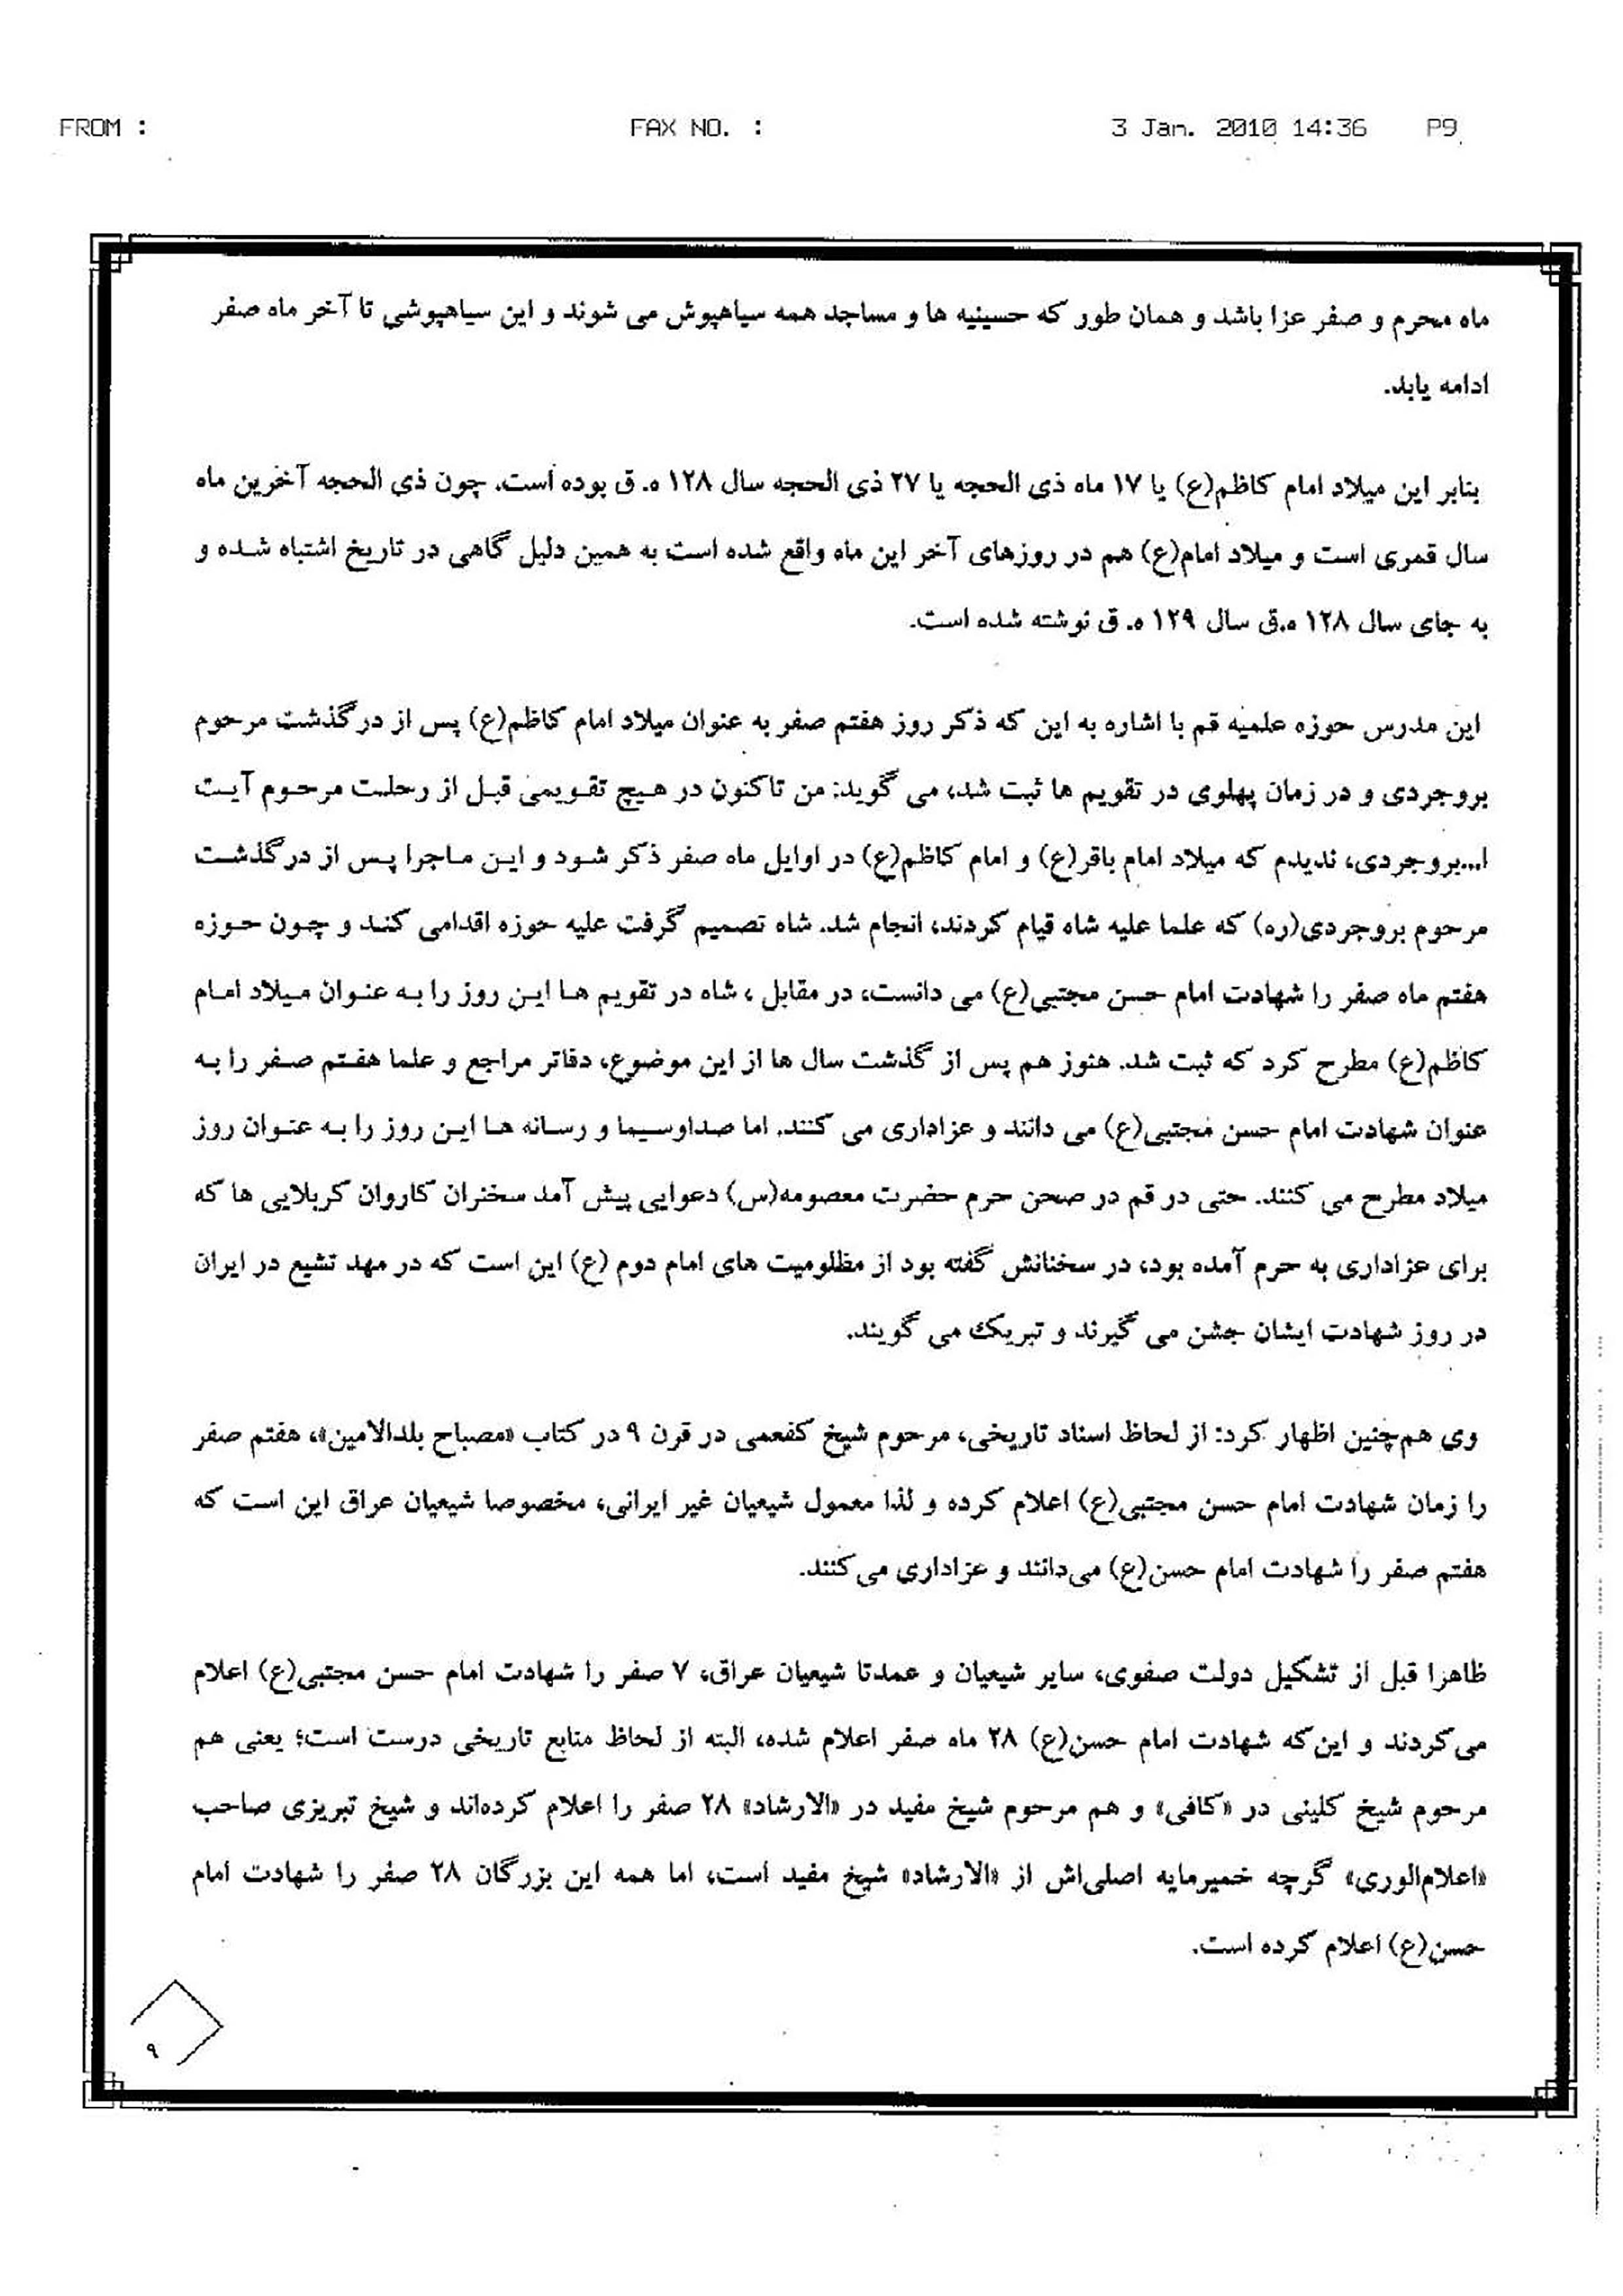 FROM : FAX NO. : 3 Jan. 2010 14:36 P9
ماه محرم و صفر عزا باشد و همان طور که حسینیه ها و مساجد همه سیاهپوش می شوند و این سیاهپوشی تا آخر ماه صفر
ادامه یابد.
بنابر این میلاد امام کاظم(ع) یا ۱۷ ماه ذی الحجه یا ۲۷ ذی الحجه سال ۱۲۸ ه. ق بوده است. چون ذی الحجه آخرین ماه
سال قمری است و میلاد امام(ع) هم در روزهای آخر این ماه واقع شده است به همین دلیل گاهی در تاریخ اشتباه شده و
به جای سال ۱۲۸ ه.ق سال ۱۲۹ ه. ق نوشته شده است.
این مدرس حوزه علمیه قم با اشاره به این که ذکر روز هفتم صفر به عنوان میلاد امام کاظم(ع) پس از درگذشت مرحوم
بروجردی و در زمان پهلوی در تقویم ها ثبت شد، می گوید: من تاکنون در هیچ تقویمی قبل از رحلت مرحوم آیت
ا...بروجردی، ندیدم که میلاد امام باقر(ع) و امام کاظم(ع) در اوایل ماه صفر ذکر شود و این ماجرا پس از درگذشت
مرحوم بروجردی(ره) که علما علیه شاه قیام کردند، انجام شد. شاه تصمیم گرفت علیه حوزه اقدامی کند و چون حوزه
هفتم ماه صفر را شهادت امام حسن مجتبی(ع) می دانست، در مقابل ، شاه در تقویم ها این روز را به عنوان میلاد امام
کاظم(ع) مطرح کرد که ثبت شد. هنوز هم پس از گذشت سال ها از این موضوع، دفاتر مراجع و علما هفتم صفر را به
عنوان شهادت امام حسن مجتبی(ع) می دانند و عزاداری می کنند. اما صداوسیما و رسانه ها این روز را به عنوان روز
میلاد مطرح می کنند. حتی در قم در صحن حرم حضرت معصومه(س) دعوایی پیش آمد سخنران کاروان کربلایی ها که
برای عزاداری به حرم آمده بود، در سخنانش گفته بود از مظلومیت های امام دوم (ع) این است که در مهد تشیع در ایران
در روز شهادت ایشان جشن می گیرند و تبریک می گویند.
وی هم‌چنین اظهار کرد: از لحاظ اسناد تاریخی، مرحوم شیخ کفعمی در قرن ۹ در کتاب «مصباح بلدالامین»، هفتم صفر
را زمان شهادت امام حسن مجتبی(ع) اعلام کرده و لذا معمول شیعیان غیر ایرانی، مخصوصا شیعیان عراق این است که
هفتم صفر را شهادت امام حسن(ع) می‌دانند و عزاداری می‌کنند.
ظاهرا قبل از تشکیل دولت صفوی، سایر شیعیان و عمدتا شیعیان عراق، ۷ صفر را شهادت امام حسن مجتبی(ع) اعلام
می‌کردند و این‌که شهادت امام حسن(ع) ۲۸ ماه صفر اعلام شده، البته از لحاظ منابع تاریخی درست است؛ یعنی هم
مرحوم شیخ کلینی در «کافی» و هم مرحوم شیخ مفید در «الارشاد» ۲۸ صفر را اعلام کرده‌اند و شیخ تبریزی صاحب
«اعلام‌الوری» گرچه خمیرمایه اصلی‌اش از «الارشاد» شیخ مفید است، اما همه این بزرگان ۲۸ صفر را شهادت امام
حسن(ع) اعلام کرده است.
۹